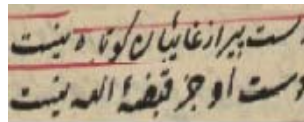 دست پیر از غایبان کوتاه نیست
دست او جز قبضهٔ الله نیست